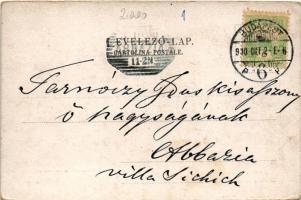 2.000 1
LEVELEZŐ-LAP.
CARTOLINA POSTALE.
11-2N
BUDAPEST
6
Tarnóczy Idus kisasszony
ő nagyságának
Abbazia
villa Sichich